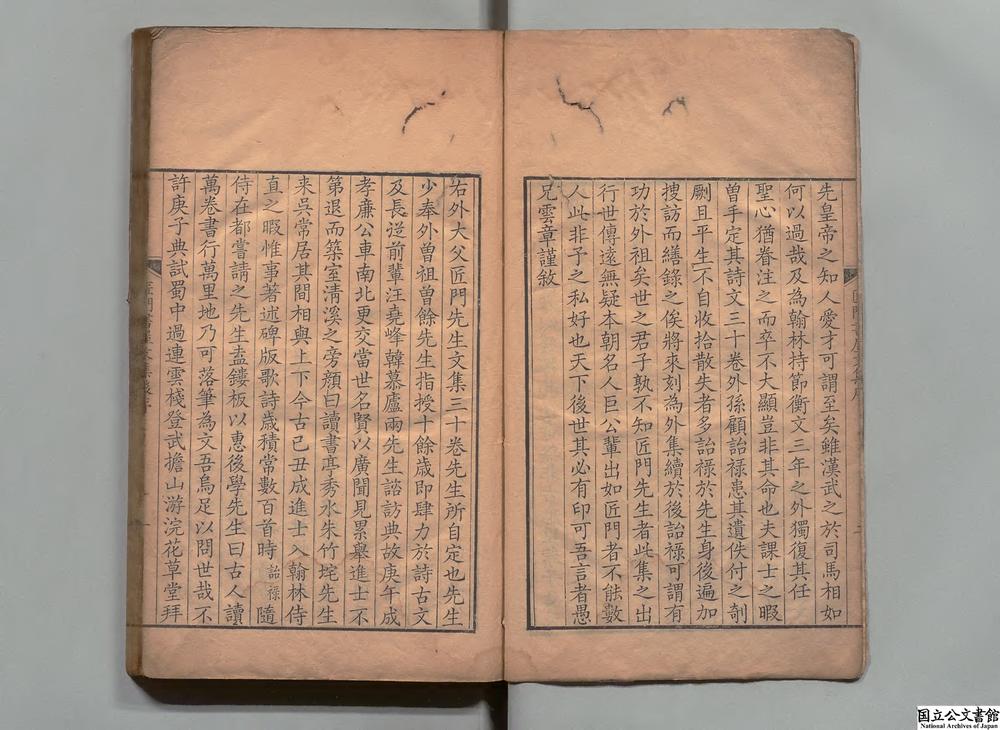 先皇帝之知人愛才可謂至矣雖漢武之於司馬相如
何以過哉及為翰林持節衡文三年之外獨復其任
聖心猶眷注之而卒不大顯豈非其命也夫課士之暇
曾手定其詩文三十卷外孫顧詒禄患其遺佚付之剞
劂且平生不自收拾散失者多詒禄於先生身後遍加
搜訪而繕錄之俟將來刻為外集續於後詒禄可謂有
功於外祖矣世之君子孰不知匠門先生者此集之出
行世傳遠無疑本朝名人巨公輩出如匠門者不能數
人此非予之私好也天下後世其必有印可吾言者愚
兄雲章謹敘
右外大父匠門先生文集三十卷先生所自定也先生
少奉外曾祖曾餘先生指授十餘歲即肆力於詩古文
及長從前輩汪堯峰韓慕廬兩先生諮訪典故庚午成
孝廉公車南北更交當世名賢以廣聞見累舉進士不
第退而築室清溪之旁顏曰讀書亭秀水朱竹垞先生
来吳常居其間相與上下今古己丑成進士入翰林侍
直之暇惟事著述碑版歌詩歲積常數百首時詒禄隨
侍在都嘗請之先生盍鏤板以惠後學先生曰古人讀
萬卷書行萬里地乃可落筆為文吾烏足以問世哉不
許庚子典試蜀中過連雲棧登武擔山游浣花草堂拜
国立公文書館
National Archives of Japan